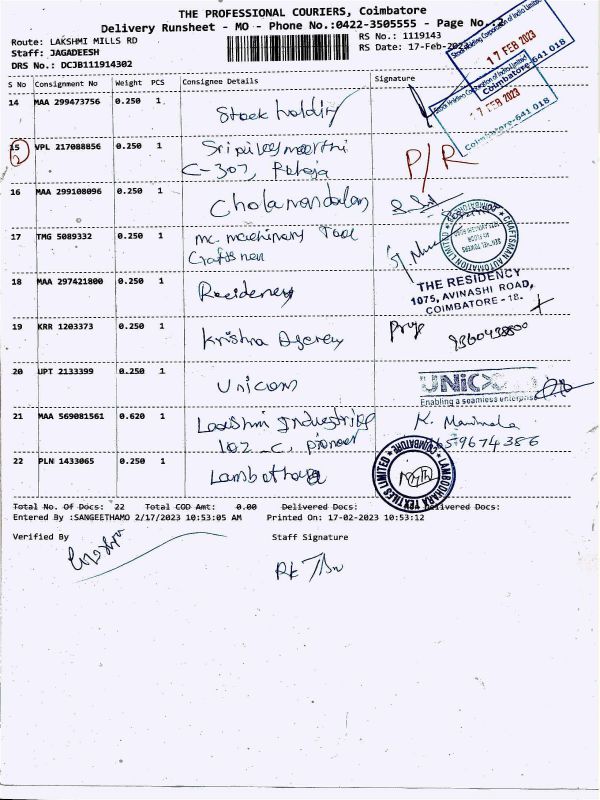 THE PROFESSIONAL COURIERS, Coimbatore
Delivery Runsheet - MO - Phone No.:0422-3505555 - Page No.:2
Route: LAKSHMI MILLS RD
Staff: JAGADEESH
DRS No.: DCJB111914302
RS No.: 1119143
RS Date: 17-Feb-2023
Stock Holding Corporation of India Limited
17 FEB 2023
Coimbatore-641 018
Stock Holding Corporation of India Limited
17 FEB 2023
Coimbatore-641 018
S No Consignment No Weight PCS Consignee Details Signature
14 MAA 299473756 0.250 1 Stock holding
15 VPL 217088856 0.250 1
2
C-307, Raheja
P/R
16 MAA 299108096 0.250 1 Cholamandalam
17 TMG 5089332 0.250 1 mc machinary Tool
Craftsman
CRAFTSMAN AUTOMATION LIMITED
18 MAA 297421800 0.250 1 Residency
THE RESIDENCY
1075, AVINASHI ROAD,
COIMBATORE - 18.
19 KRR 1203373 0.250 1 Krishna Agency
9360438800
20 UPT 2133399 0.250 1 Unicom
UNIC
Enabling a seamless enterprise
21 MAA 569081561 0.620 1 Laxshmi Industries
102-C, pioneer
K.
9674386
22 PLN 1433065 0.250 1
LAMBODHARA TEXTILES LIMITED
COIMBATORE
Total No. Of Docs: 22 Total COD Amt: 0.00 Delivered Docs: Delivered Docs:
Entered By :SANGEETHAMO 2/17/2023 10:53:05 AM Printed On: 17-02-2023 10:53:12
Verified By
Staff Signature